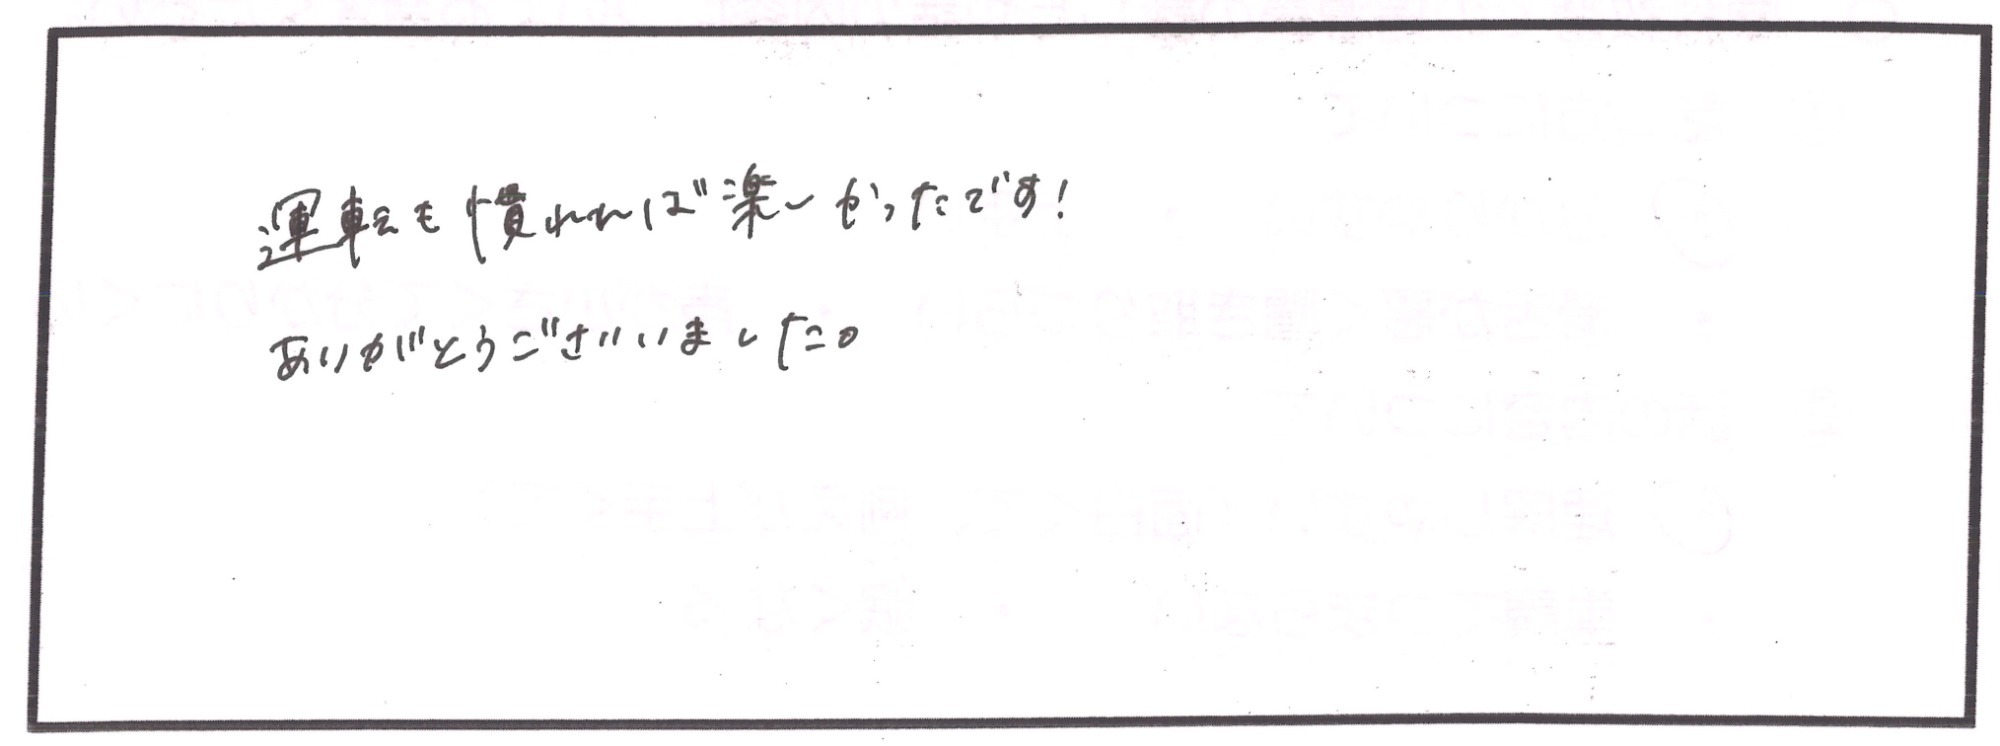 運転も慣れれば楽しかったです!
ありがとうございました。